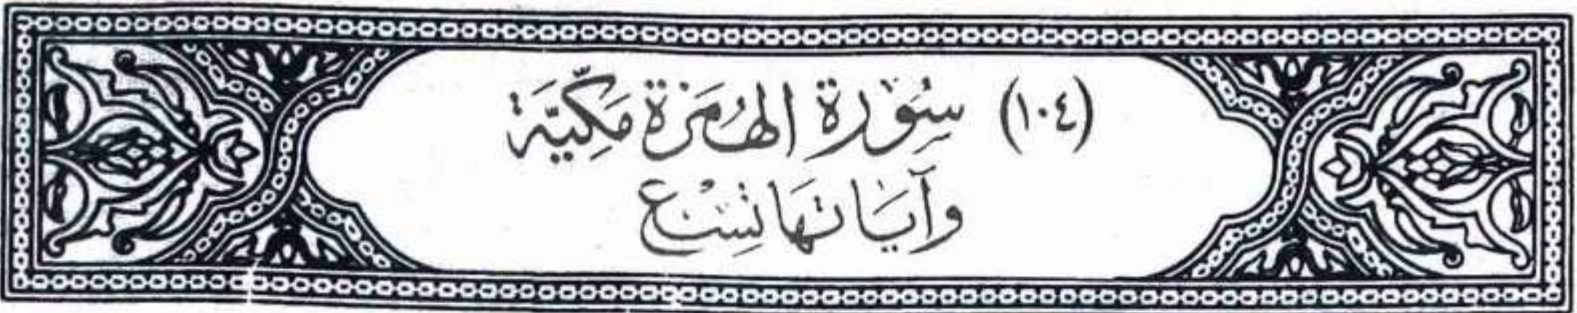 (١٠٤) سُوْرَة الهُمَزة مَكِّيَّة
وآيَاتهَا تِسْع